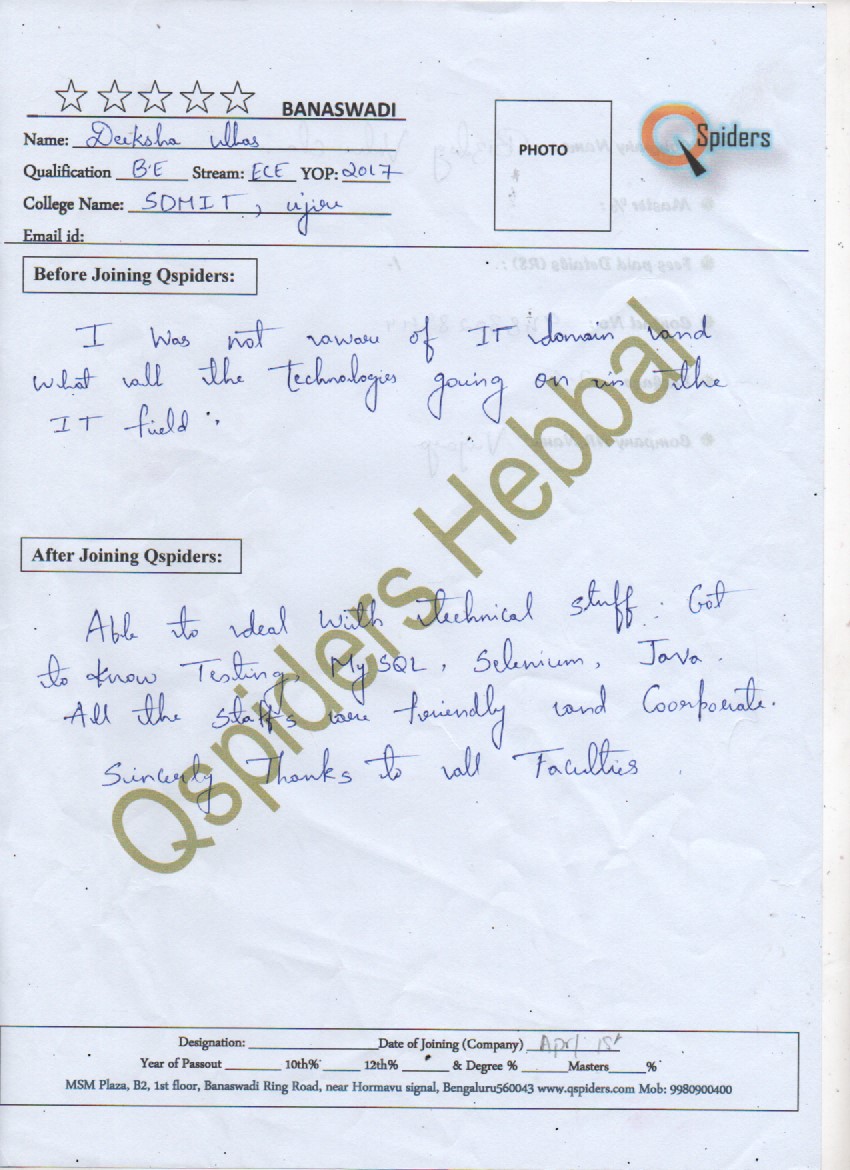 BANASWADI
Name: Deeksha Ulhas
PHOTO
Spiders
Qualification B.E Stream: ECE YOP: 2017
College Name: SDMIT, ujire
Email id:
Before Joining Qspiders:
I was not aware of IT domain and
what all the Technologies going on in the
IT field.
After Joining Qspiders:
Able to deal with technical stuff. Got
to know Testing, MySQL, Selenium, Java.
All the staffs were friendly and Coorporate.
Sincerly Thanks to all Faculties
Qspiders Hebbal
Designation: Date of Joining (Company) April 1st
Year of Passout 10th% 12th% & Degree % Masters %
MSM Plaza, B2, 1st floor, Banaswadi Ring Road, near Hormavu signal, Bengaluru560043 www.qspiders.com Mob: 9980900400